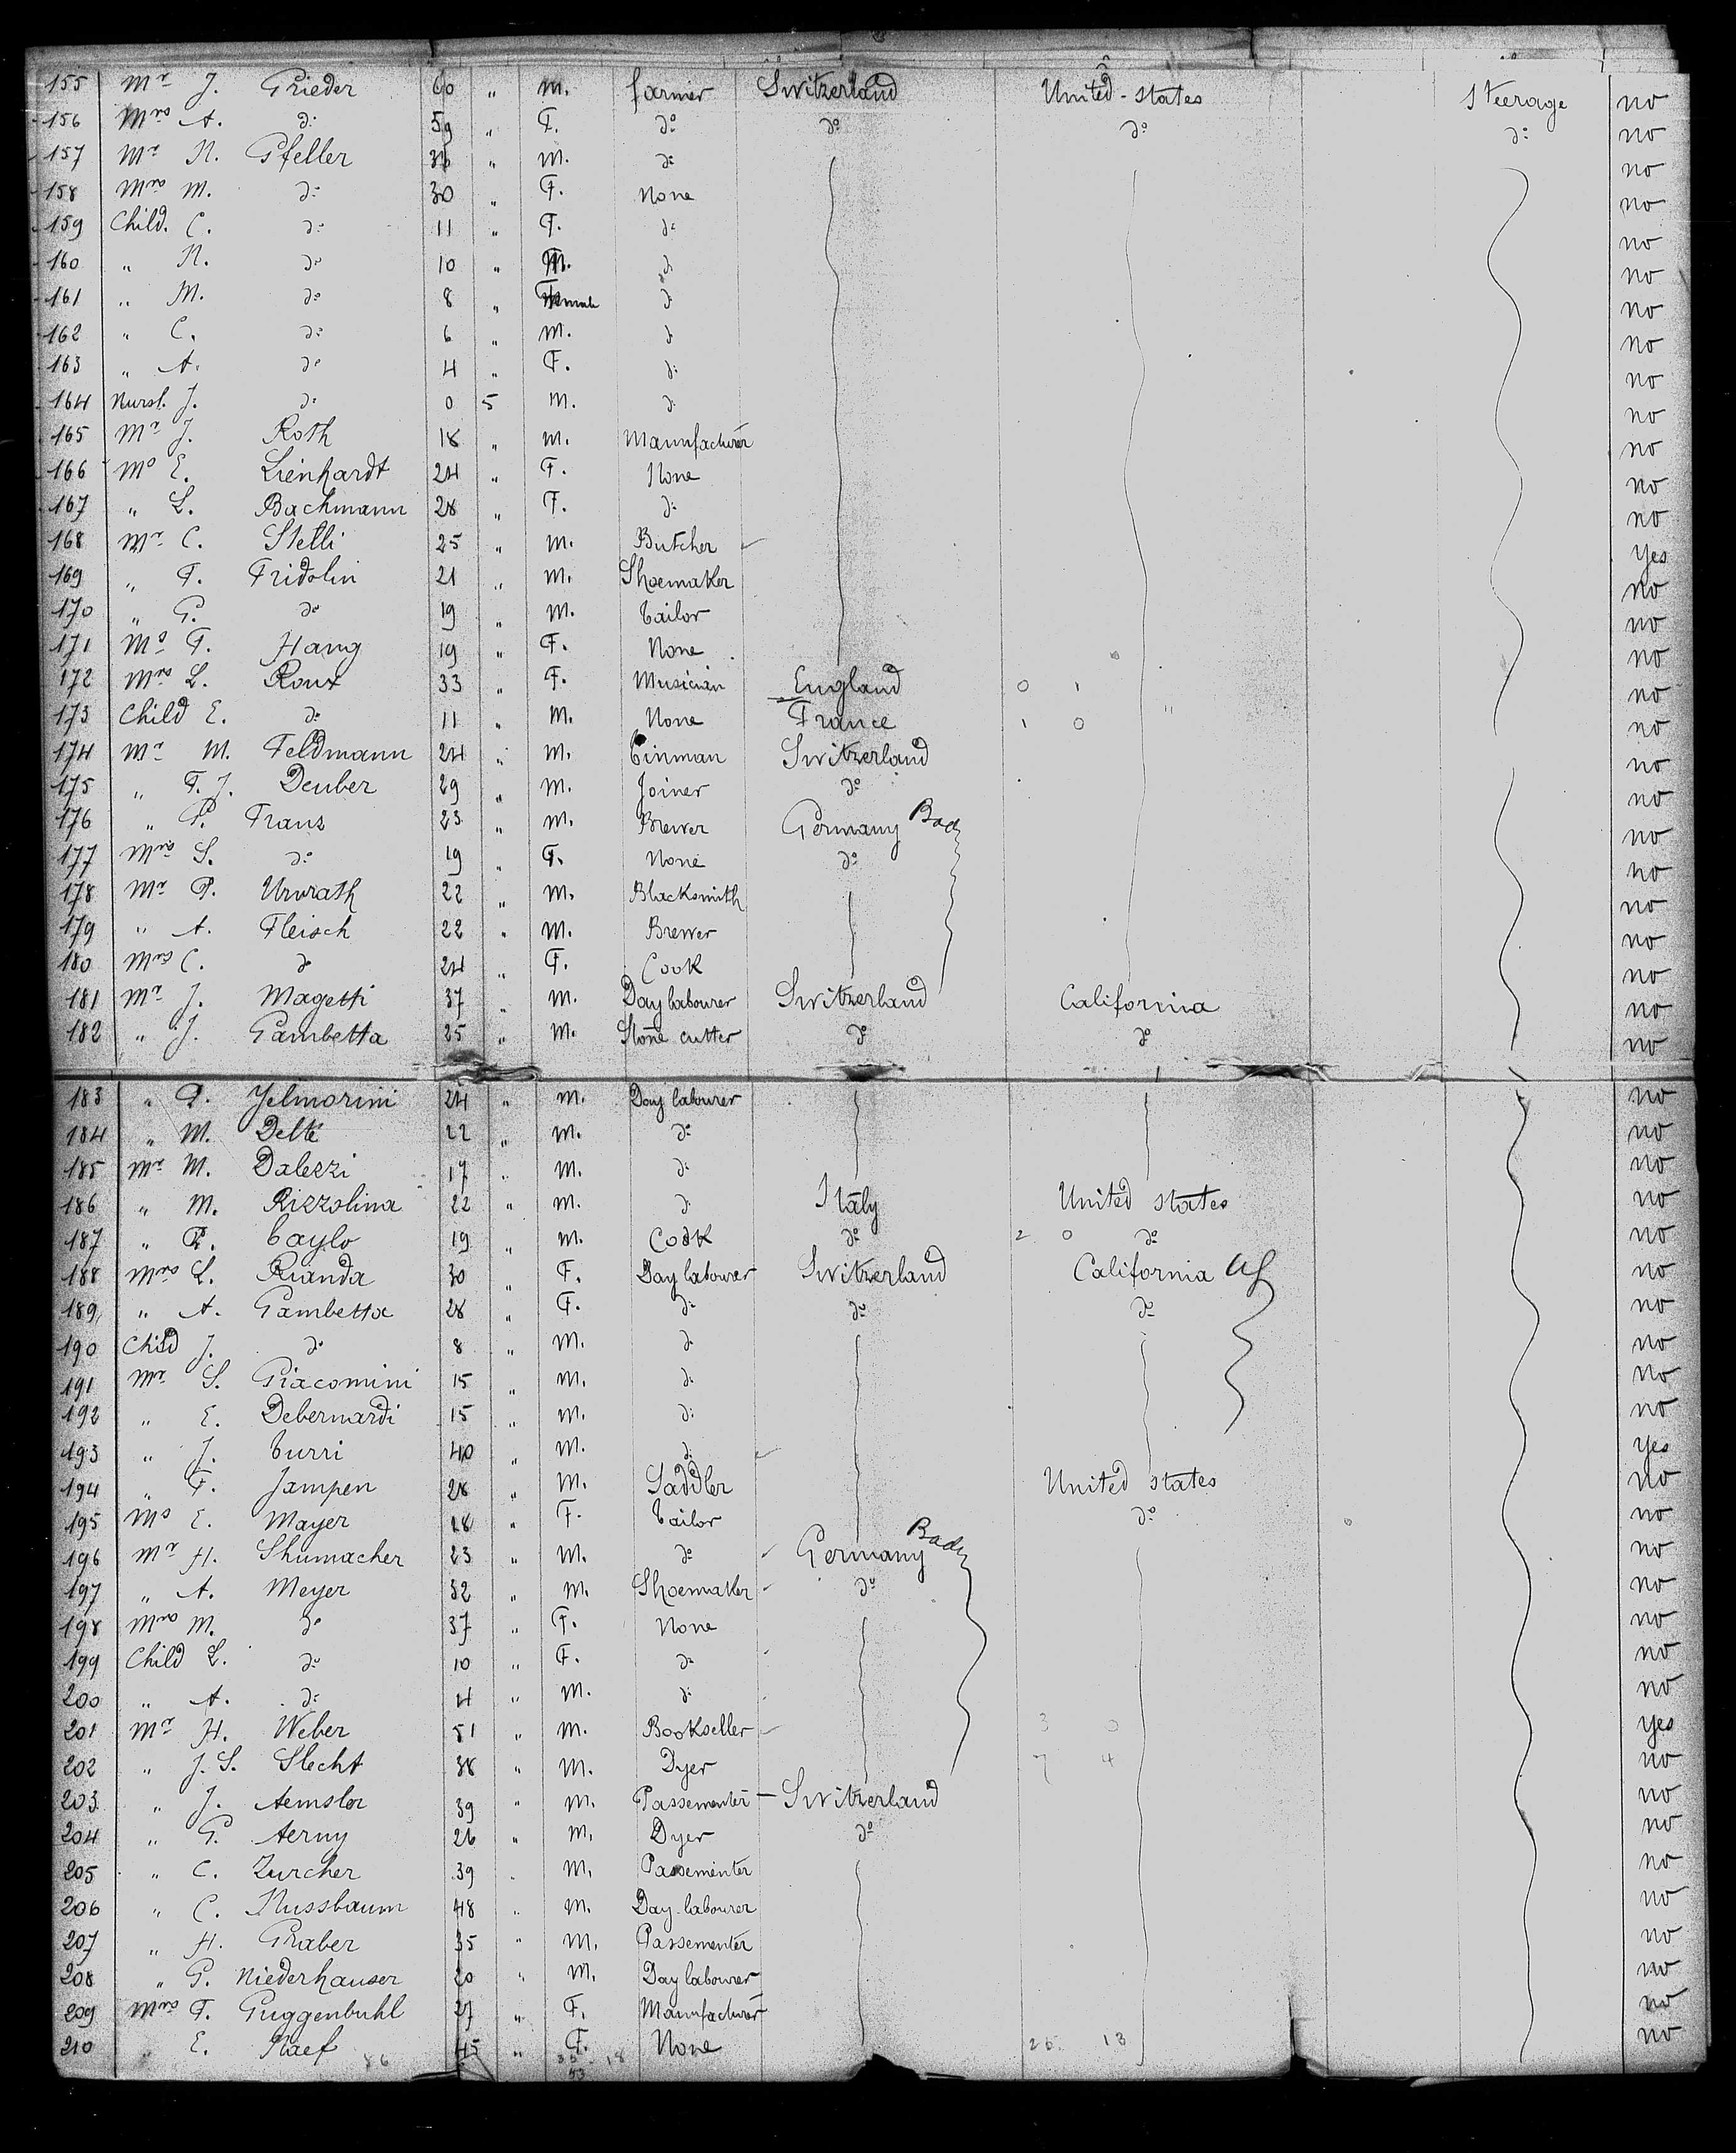 155 Mr J. Grieder 60 " M. farmer Switzerland United-States Steerage no
156 Mrs A. do 59 " F. do do do do no
157 Mr N. Gfeller 36 " M. do no
158 Mrs M. do 30 " F. None no
159 Child. C. do 11 " F. do no
160 " N. do 10 " M. do no
161 " M. do 8 " F do no
162 " C. do 6 " M. do no
163 " A. do 4 " F. do no
164 Nursl. J. do 0 5 M. do no
165 Mr J. Roth 18 " M. Manufacturer no
166 Ms E. Lienhardt 24 " F. None no
167 " L. Bachmann 28 " F. do no
168 Mr C. Stelli 25 " M. Butcher Yes
169 " F. Fridolin 21 " M. Shoemaker no
170 " G. do 19 " M. Tailor no
171 Ms F. Hang 19 " F. None no
172 Mrs L. Roux 33 " F. Musician England 0 1 no
173 Child E. do 11 " M. None France 1 0 " no
174 Mr M. Feldmann 24 " M. Tinman Switzerland no
175 " F. J. Deuber 29 " M. Joiner do no
176 " P. Franz 23 " M. Brewer Germany Bad no
177 Mrs S. do 19 " F. None do no
178 Mr P. Unrath 22 " M. Blacksmith no
179 " A. Fleisch 22 " M. Brewer no
180 Mrs C. do 24 " F. Cook no
181 Mr J. Magetti 37 " M. Day labourer Switzerland California no
182 " J. Gambetta 25 " M. Stone cutter do do no
183 " P. Jelmorini 24 " M. Day labourer no
184 " M. 22 " M. do no
185 Mr M. Dalezzi 17 " M. do no
186 " M. Rizzolina 22 " M. do Italy United States no
187 " P. Caylo 19 " M. Cook do 2 0 do no
188 Mrs L. Rianda 30 " F. Day labourer Switzerland California no
189 " A. Gambetta 28 " F. do do do no
190 Child J. do 8 " M. do no
191 Mr S. Giacomini 15 " M. do no
192 " E. Debernardi 15 " M. do no
193 " J. Turri 40 " M. do Yes
194 " F. Jampen 28 " M. Saddler United States no
195 Ms E. Mayer 18 " F. Tailor do no
196 Mr H. Shumacher 23 " M. do Germany Bad no
197 " A. Meyer 32 " M. Shoemaker do no
198 Mrs M. do 37 " F. None no
199 Child L. do 10 " F. do no
200 " A. do 4 " M. do no
201 Mr H. Weber 51 " M. Bookseller 3 0 Yes
202 " J. S. Slecht 38 " M. Dyer 7 4 no
203 " J. Aemsler 39 " M. Passementer Switzerland no
204 " G. Aerny 26 " M. Dyer do no
205 " C. Zurcher 39 " M. Passementer no
206 " C. Nussbaum 48 " M. Day-labourer no
207 " H. Graber 35 " M. Passementer no
208 " G. Niederhauser 20 " M. Day labourer no
209 Mrs F. Guggenbuhl 27 " F. Manufacturer no
210 " E. Naef 45 " F. None 26 13 no
86 35 18
53